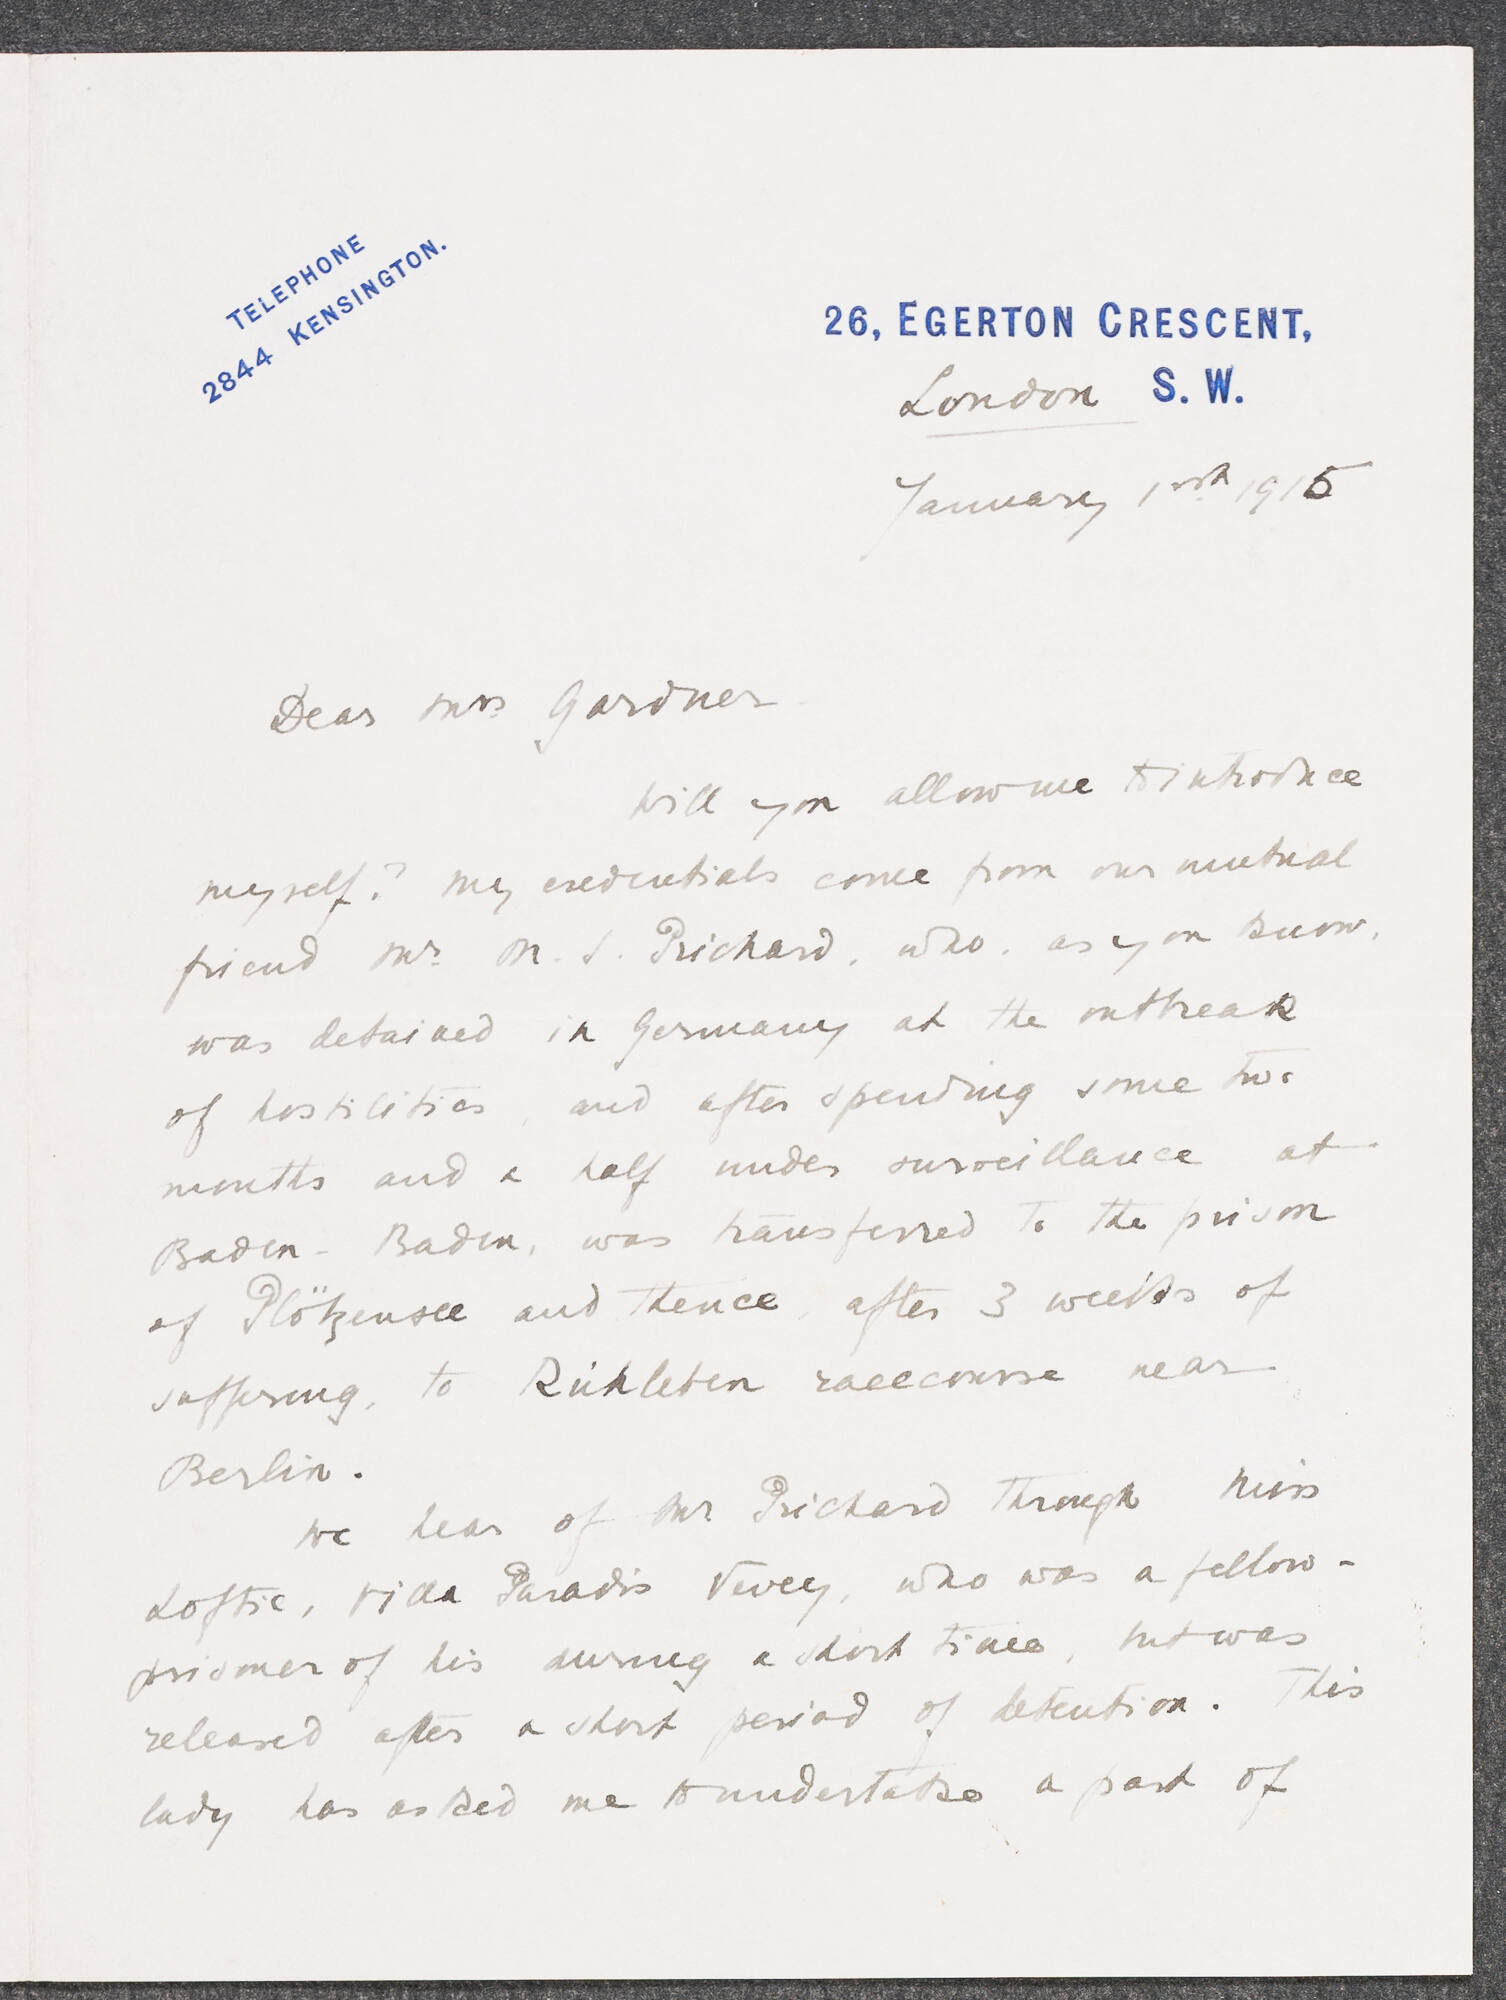 TELEPHONE
2844 KENSINGTON.
26, EGERTON CRESCENT,
London S. W.
January 1st 1915
Dear Mrs Gardner
Will you allow me to introduce
myself? My credentials come from our mutual
friend Mr. M. S. Prichard, who, as you know,
was detained in Germany at the outbreak
of hostilities, and after spending some two
months and a half under surveillance at
Baden-Baden, was transferred to the prison
of Plötzensee and thence, after 3 weeks of
suffering, to Ruhleben racecourse near
Berlin.
We hear of Mr Prichard through Miss
Loftie, Villa Paradis Vevey, who was a fellow-
prisoner of his during a short time, but was
released after a short period of detention. This
lady has asked me to undertake a part of